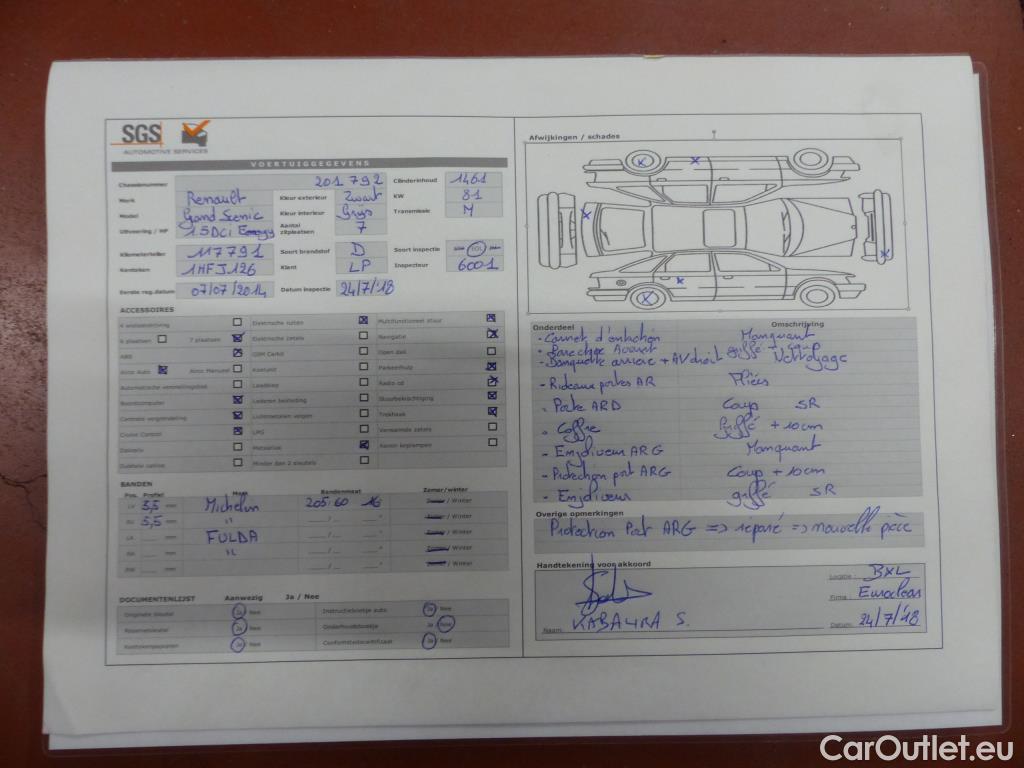 SGS
AUTOMOTIVE SERVICES
VOERTUIGGEGEVENS
Chassisnummer 201 792 Cilinderinhoud 1461
Merk Renault Kleur exterieur Zwart KW 81
Model Grand Scenic Kleur interieur Grijs Transmissie M
Uitvoering / HP 1.5 DCi Energy Aantal zitplaatsen 7
Kilometerteller 117791 Soort brandstof D Soort inspectie EOL
Kenteken 1HFJ126 Klant LP Inspecteur 6001
Eerste reg.datum 07/07/2014 Datum inspectie 24/7/'18
ACCESSOIRES
4 wielaandrijving Elektrische ruiten Multifunctioneel stuur
6 plaatsen 7 plaatsen Elektrische zetels Navigatie
ABS GSM Carkit Open dak
Airco Auto Airco Manueel Koelunit Parkeerhulp
Automatische versnellingsbak Laadklep Radio cd
Boordcomputer Lederen bekleding Stuurbekrachtiging
Centrale vergrendeling Lichtmetalen velgen Trekhaak
Cruise Control LPG Verwarmde zetels
Dakrails Metallise Xenon koplampen
Dubbele cabine Minder dan 2 sleutels
BANDEN
Pos. Profiel Merk Bandenmaat Zomer/winter
LV 5,5 mm Michelin 205/60 16 Zomer / Winter
RV 5,5 mm " Zomer / Winter
LA mm FULDA Zomer / Winter
RA mm " Zomer / Winter
RW mm Zomer / Winter
DOCUMENTENLIJST Aanwezig Ja / Nee
Originele sleutel Ja Nee Instructieboekje auto Ja Nee
Reservesleutel Ja Nee Onderhoudsboekje Ja Nee
Kentekenpapieren Ja Nee Conformiteitscertificaat Ja Nee
Afwijkingen / schades
Onderdeel Omschrijving
- Carnet d'entretien Manquant
- Parechoc Avant griffé + coup
- Banquette arriere + AV droit Nettoyage
- Rideaux portes AR Pliés
- Porte ARD Coup SR
- Coffre Griffé + 10cm
- Enjoliveur ARG Manquant
- Protection port ARG Coup + 10cm
- Enjoliveur griffé SR
Overige opmerkingen
Protection Port ARG => réparé => nouvelle pièce
Handtekening voor akkoord
Locatie : BXL
Firma : Euroclear
Naam: KABAYRA S. Datum: 24/7/'18
CarOutlet.eu